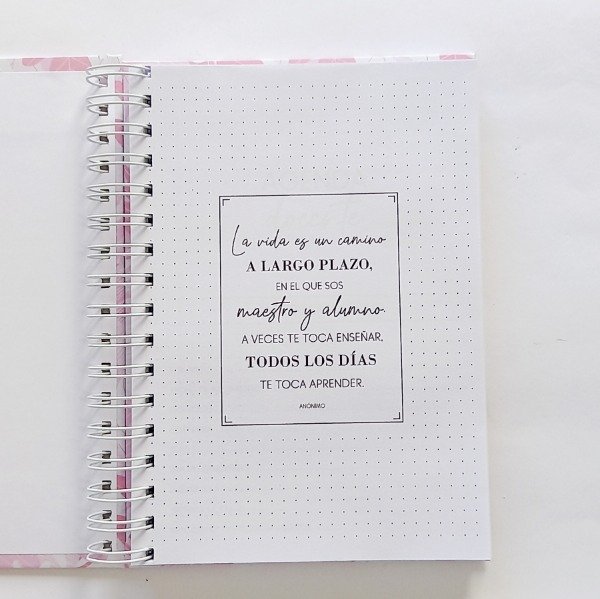 La vida es un camino
A LARGO PLAZO,
EN EL QUE SOS
maestro y alumno.
A VECES TE TOCA ENSEÑAR,
TODOS LOS DÍAS
TE TOCA APRENDER.
ANÓNIMO